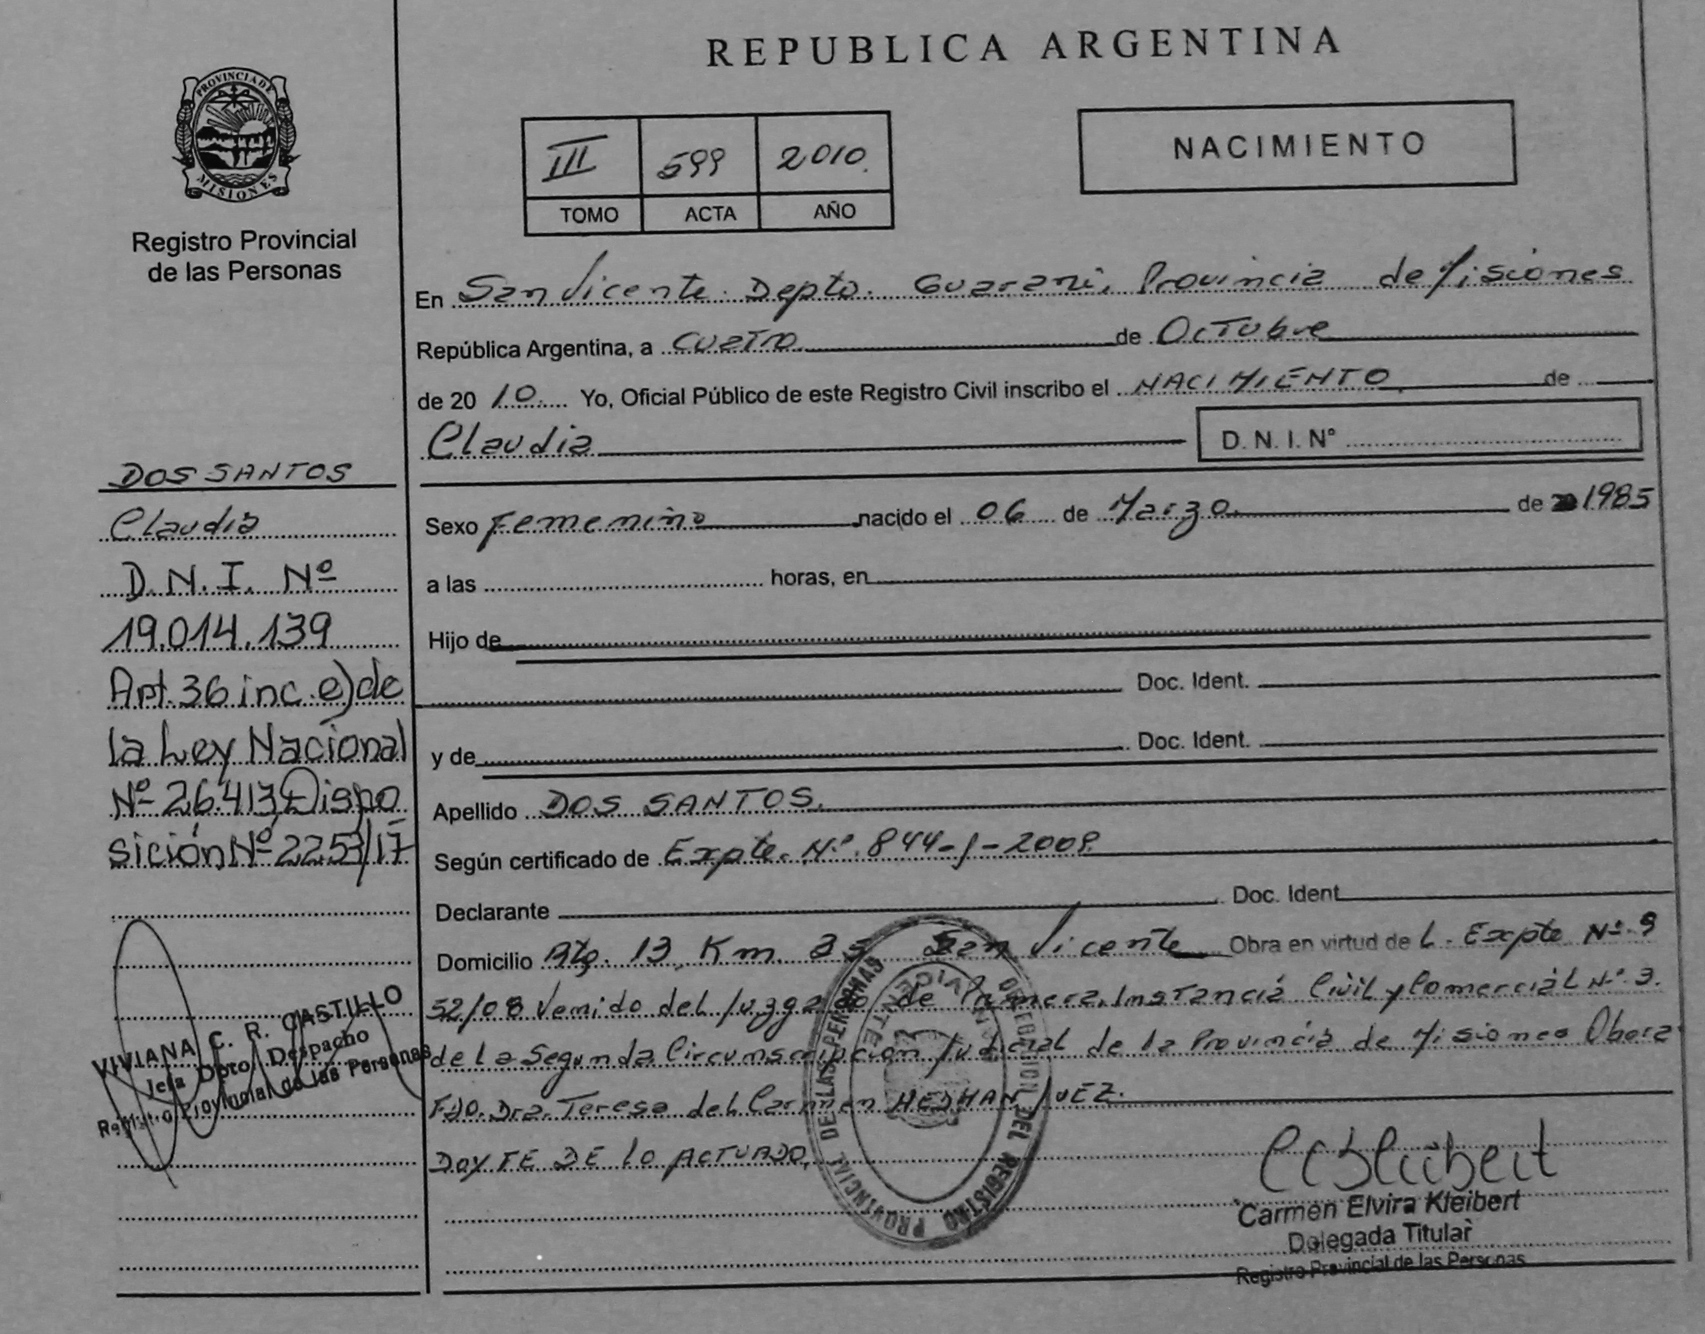 REPUBLICA ARGENTINA
PROVINCIA DE
MISIONES
Registro Provincial
de las Personas
III 599 2010
TOMO ACTA AÑO
NACIMIENTO
En San Vicente Depto. Guarani, Provincia de Misiones
República Argentina, a cuatro de Octubre
de 20 10. Yo, Oficial Público de este Registro Civil inscribo el NACIMIENTO de
Claudia D. N. I. Nº
Sexo Femenino nacido el 06 de Marzo de 1985
a las horas, en
Hijo de
Doc. Ident.
y de Doc. Ident.
Apellido DOS SANTOS.
Según certificado de Expte. Nº. 844-J-2008
Declarante Doc. Ident.
Domicilio Rta. 13 Km. 35 San Vicente Obra en virtud de L. Expte Nº 9
52/08 Venido del Juzgado de Primera Instancia Civil y Comercial Nº 3.
de la Segunda Circunscripción Judicial de la Provincia de Misiones Obera
FDO. Dra. Teresa del Carmen HEDMAN JUEZ.
DOY FE DE LO ACTUADO,
Carmen Elvira Kleibert
Delegada Titular
Registro Provincial de las Personas
DOS SANTOS
Claudia
D.N.I. Nº
19.014.139
Art. 36 inc. e) de
la Ley Nacional
Nº 26.413, Dispo
sición Nº 2253/17
VIVIANA C. R. CASTILLO
Jefa Dpto. Despacho
Registro Provincial de las Personas
DELEGACION DEL REGISTRO PROVINCIAL DE LAS PERSONAS
SAN VICENTE